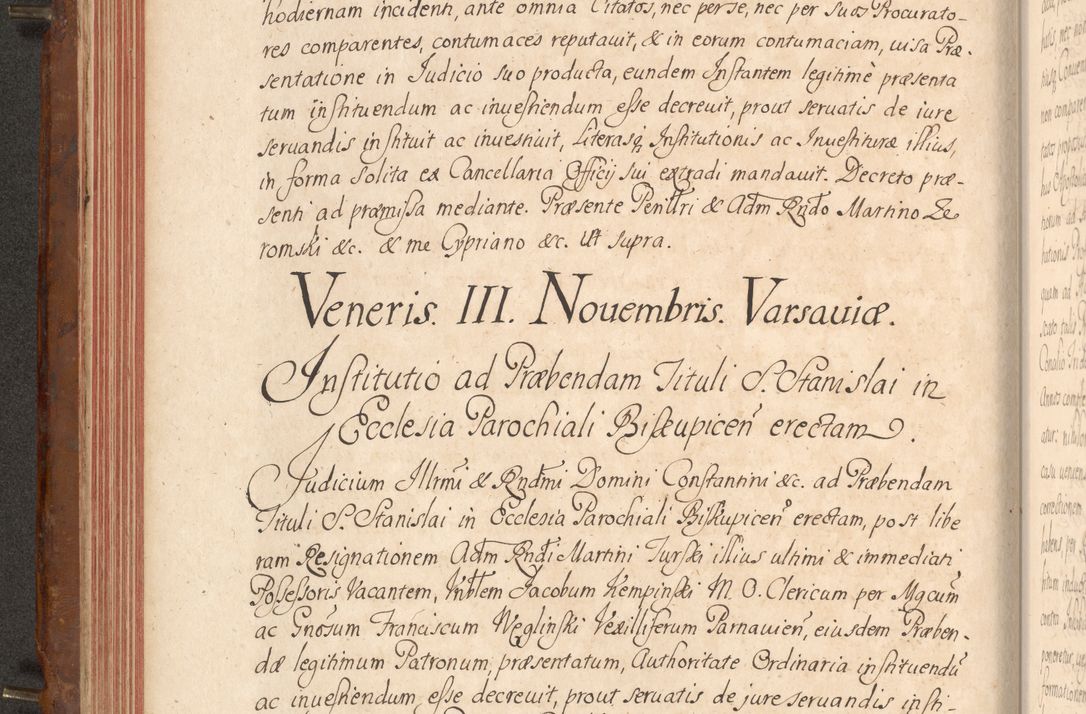 hodiernam incidenti, ante omnia Citatos, nec per se, nec per suos Procurato-
res comparentes, contumaces reputauit, & in eorum contumaciam, uisa Præ-
sentatione in Judicio suo producta, eundem Instantem legitimè præsenta
tum instituendum ac inuestiendum esse decreuit, prout seruatis de iure
seruandis instituit ac inuestiuit, Literasq Institutionis ac Inuestituræ illius,
in forma solita ex Cancellaria Officij sui extradi mandauit. Decreto præ-
senti ad præmissa mediante. Præsente Penlłri & Adm Rndo Martino Ze
romski &c. & me Cypriano &c. Ut supra.
Veneris. III. Nouembris. Varsauiæ.
Institutio ad Præbendam Tituli S. Stanislai in
Ecclesia Parochiali Biskupicen erectam.
Judicium Illrmi & Rndmi Domini Constantini &c. ad Præbendam
Tituli S. Stanislai in Ecclesia Parochiali Biskupicen erectam, post libe
ram Resignationem Adm Rndi Martini Turski illius ultimi & immediati
Possessoris Vacantem, Nobłem Jacobum Kempinski M. O. Clericum per Mgcum
ac Gnosum Franciscum Węglinski Vexilliferum Parnauien, eiusdem Præben-
dæ legitimum Patronum, præsentatum, Authoritate Ordinaria instituendu
ac inuestiendum esse decreuit, prout seruatis de jure seruandis insti-